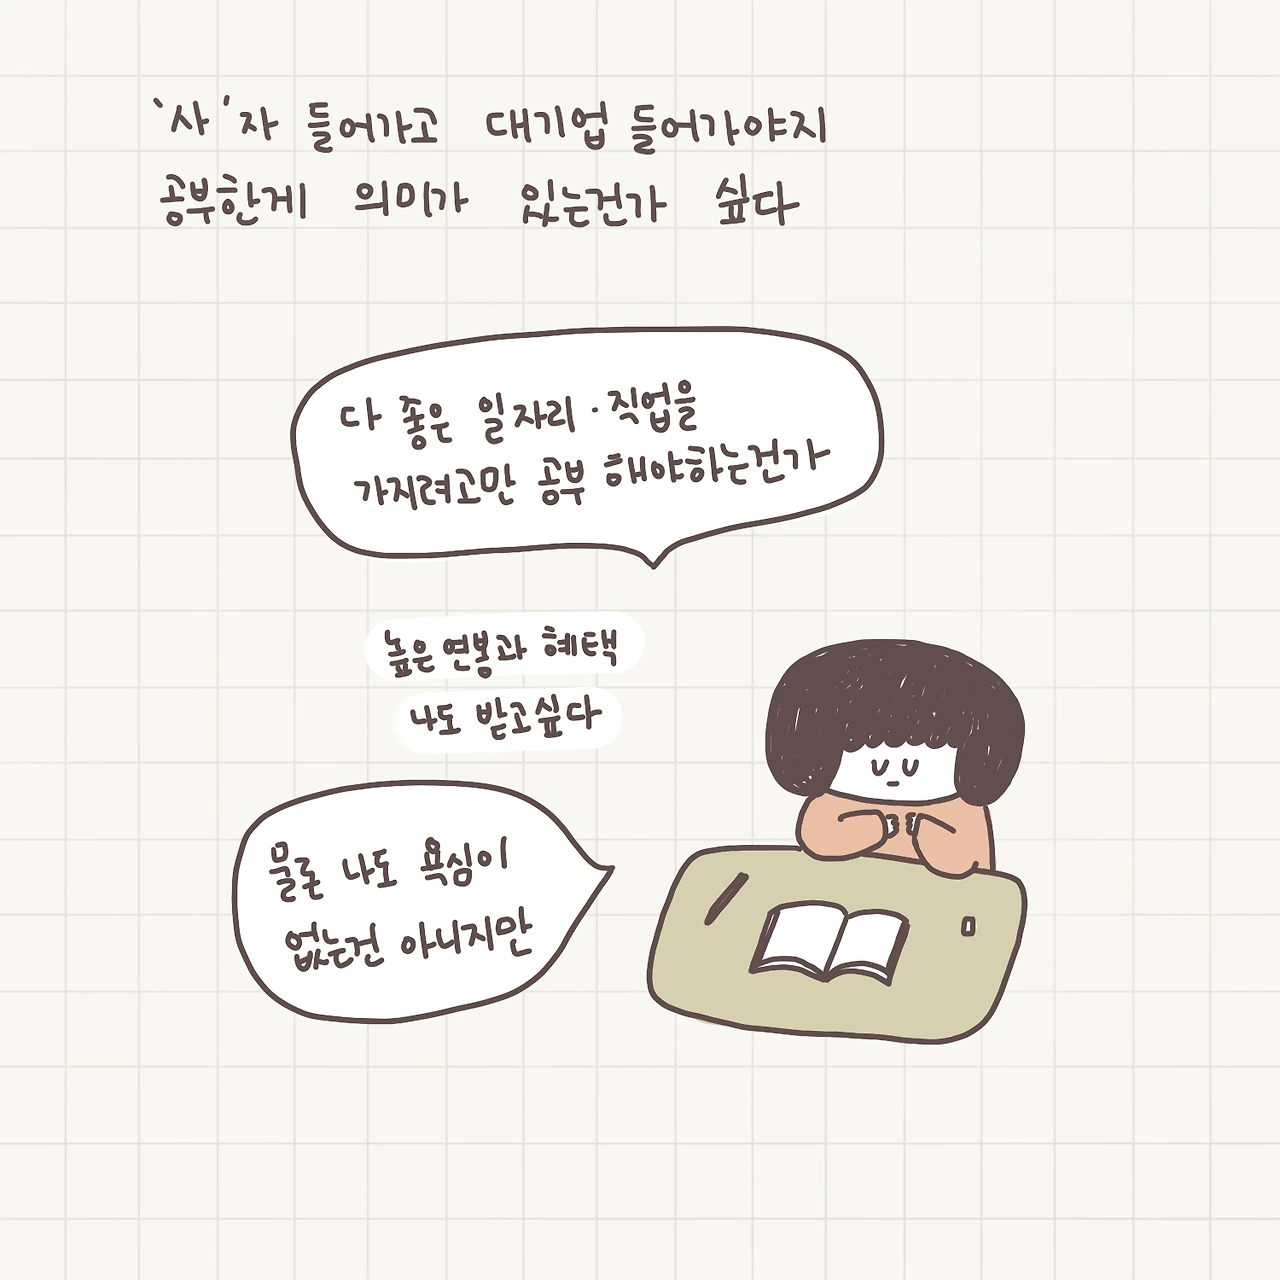 '사'자 들어가고 대기업 들어가야지
공부한게 의미가 있는건가 싶다
다 좋은 일자리·직업을
가지려고만 공부 해야하는건가
높은 연봉과 혜택
나도 받고싶다
물론 나도 욕심이
없는건 아니지만